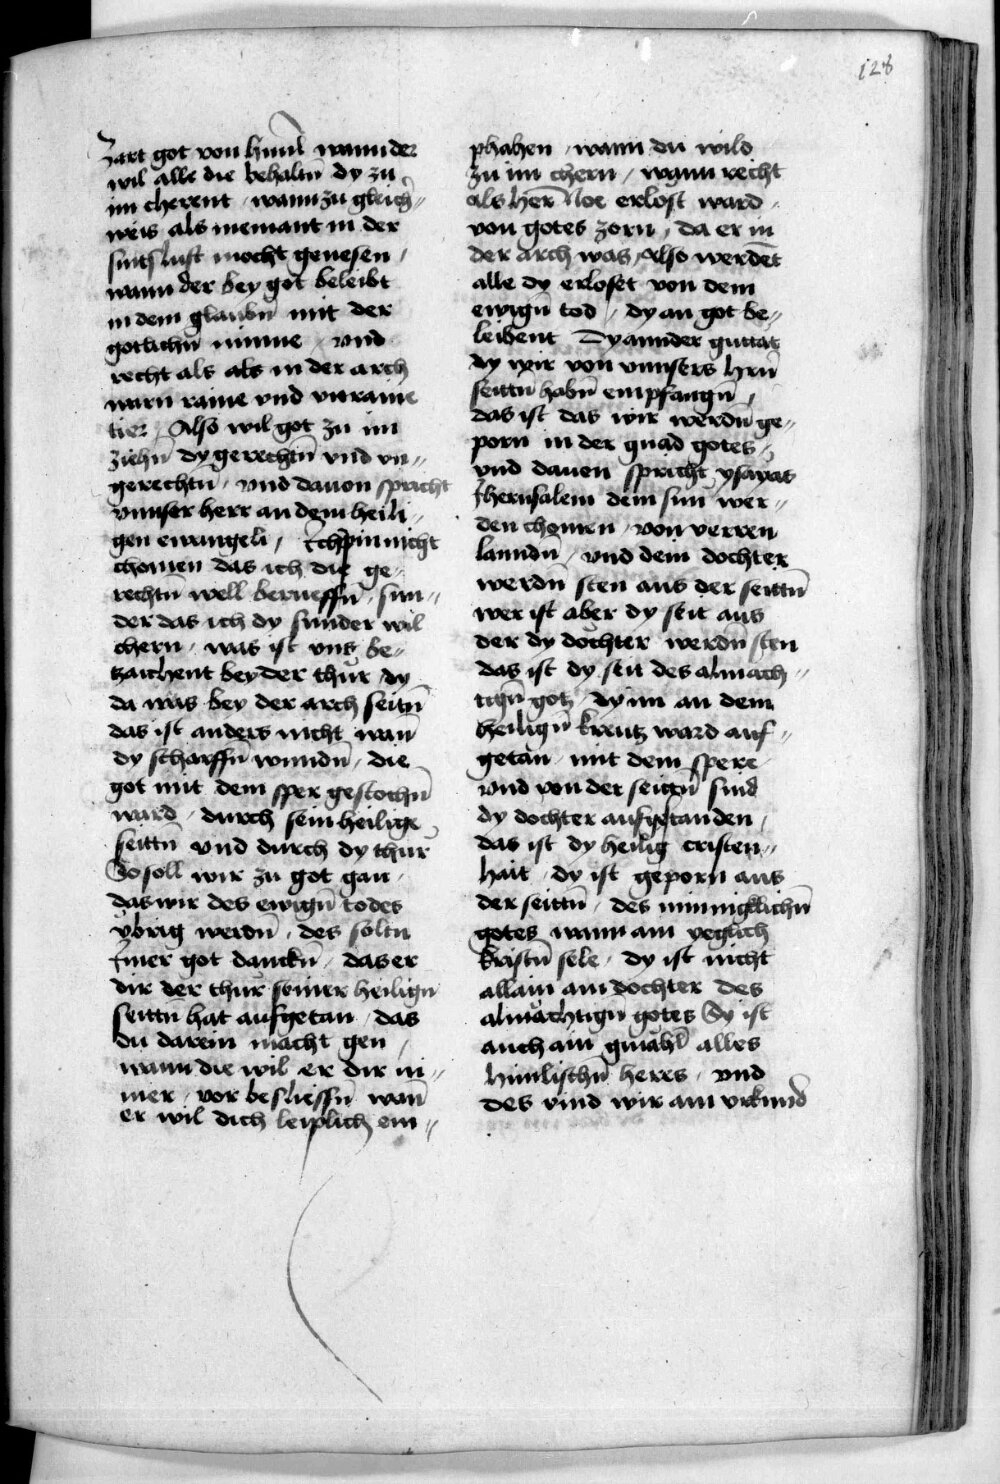 128
zart got von himl wann der
wil alle die behaltn̄ dy zu
im cherent / wann zu gleich̄ //
weis als niemant in der
sintflust mocht genesen /
wann der bey got beleibt
in dem glaubn̄ mit der
gotlichn̄ minne / vnd
recht als als in der arch
warn raine vnd vnraine
tier / Also wil got zu im
ziehn̄ dy gerechtn̄ vnd vn //
gerechtn / vnd dauon spricht
vnnser herr an dem heili //
gen ewangeli / Ich pin nicht
chomen das ich die ge //
rechtn̄ well berueffn̄ / sun //
der das ich dy sunder wil
chern / was ist vns be //
tzaichent bey der thur dy
da was bey der arch seitn̄
das ist anders nicht wan̄
dy scharffn̄ wundn̄ / die
got mit dem sper gestochn̄
ward / durch sein heilige
seittn̄ vnd durch dy thur
So soll wir zu got gan /
das wir des ewign̄ todes
vbrig werdn̄ / des soltu
ymer got danckn̄ / das er
dir der thur seiner heilign̄
seittn̄ hat aufgetan / das
du darein macht gen /
wann die wil er dir ni //
mer / vor besliessn̄ wan̄
er wil dich leiplich em //
phahen / wann du wild
zu im chern / wann recht
als her̄ Noe erlost ward /
von gotes zorn / da er in
der arch was / Also werdent
alle dy erloset von dem
ewign̄ tod / dy an got be //
leibent Dy annder guttat
dy wir von vnnsers hrn̄
seittn̄ habn̄ empfangn̄ /
das ist das wir werdn̄ ge //
porn in der gnad gotes /
vnd dauon spricht ysayas
Jherusalem dem sun wer //
den chomen / von verren
lanndn̄ / vnd dem dochter
werdn̄ sten aus der seittn̄
wer ist aber dy seit aus
der dy dochter werdn̄ sten
das ist dy seit des almach //
tign̄ gotz / dy im an dem
heilign̄ kreutz ward auf //
getan / mit dem spere /
vnd von der seittn̄ sind
dy dochter aufgestanden /
das ist dy heilig cristen //
hait / dy ist geporn aus
der seittn̄ / des minnigklichn̄
gotes wann ain yeglich
kristn̄ sele / dy ist nicht
allain ain dochter des
almachtign̄ gotes Sy ist
auch ain gmahl̄ alles
himlischn̄ heres / vnd
des vind wir ain vrkund̄